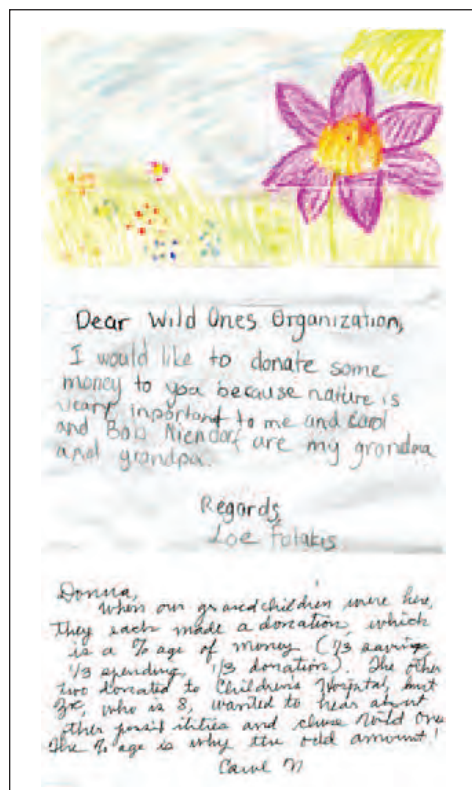 Dear Wild Ones Organization,
I would like to donate some
money to you because nature is
veary inportant to me and Carol
and Bob Niendorf are my grandma
and grandpa.
Regards,
Zoe Folakis
Donna,
When our grandchildren were here,
they each made a donation, which
is a % age of money (1/3 saving
1/3 spending, 1/3 donation). The other
two donated to Children's Hospital, but
Zoe, who is 8, wanted to hear about
other possibilities and chose Wild Ones
The % age is why the odd amount!
Carol N